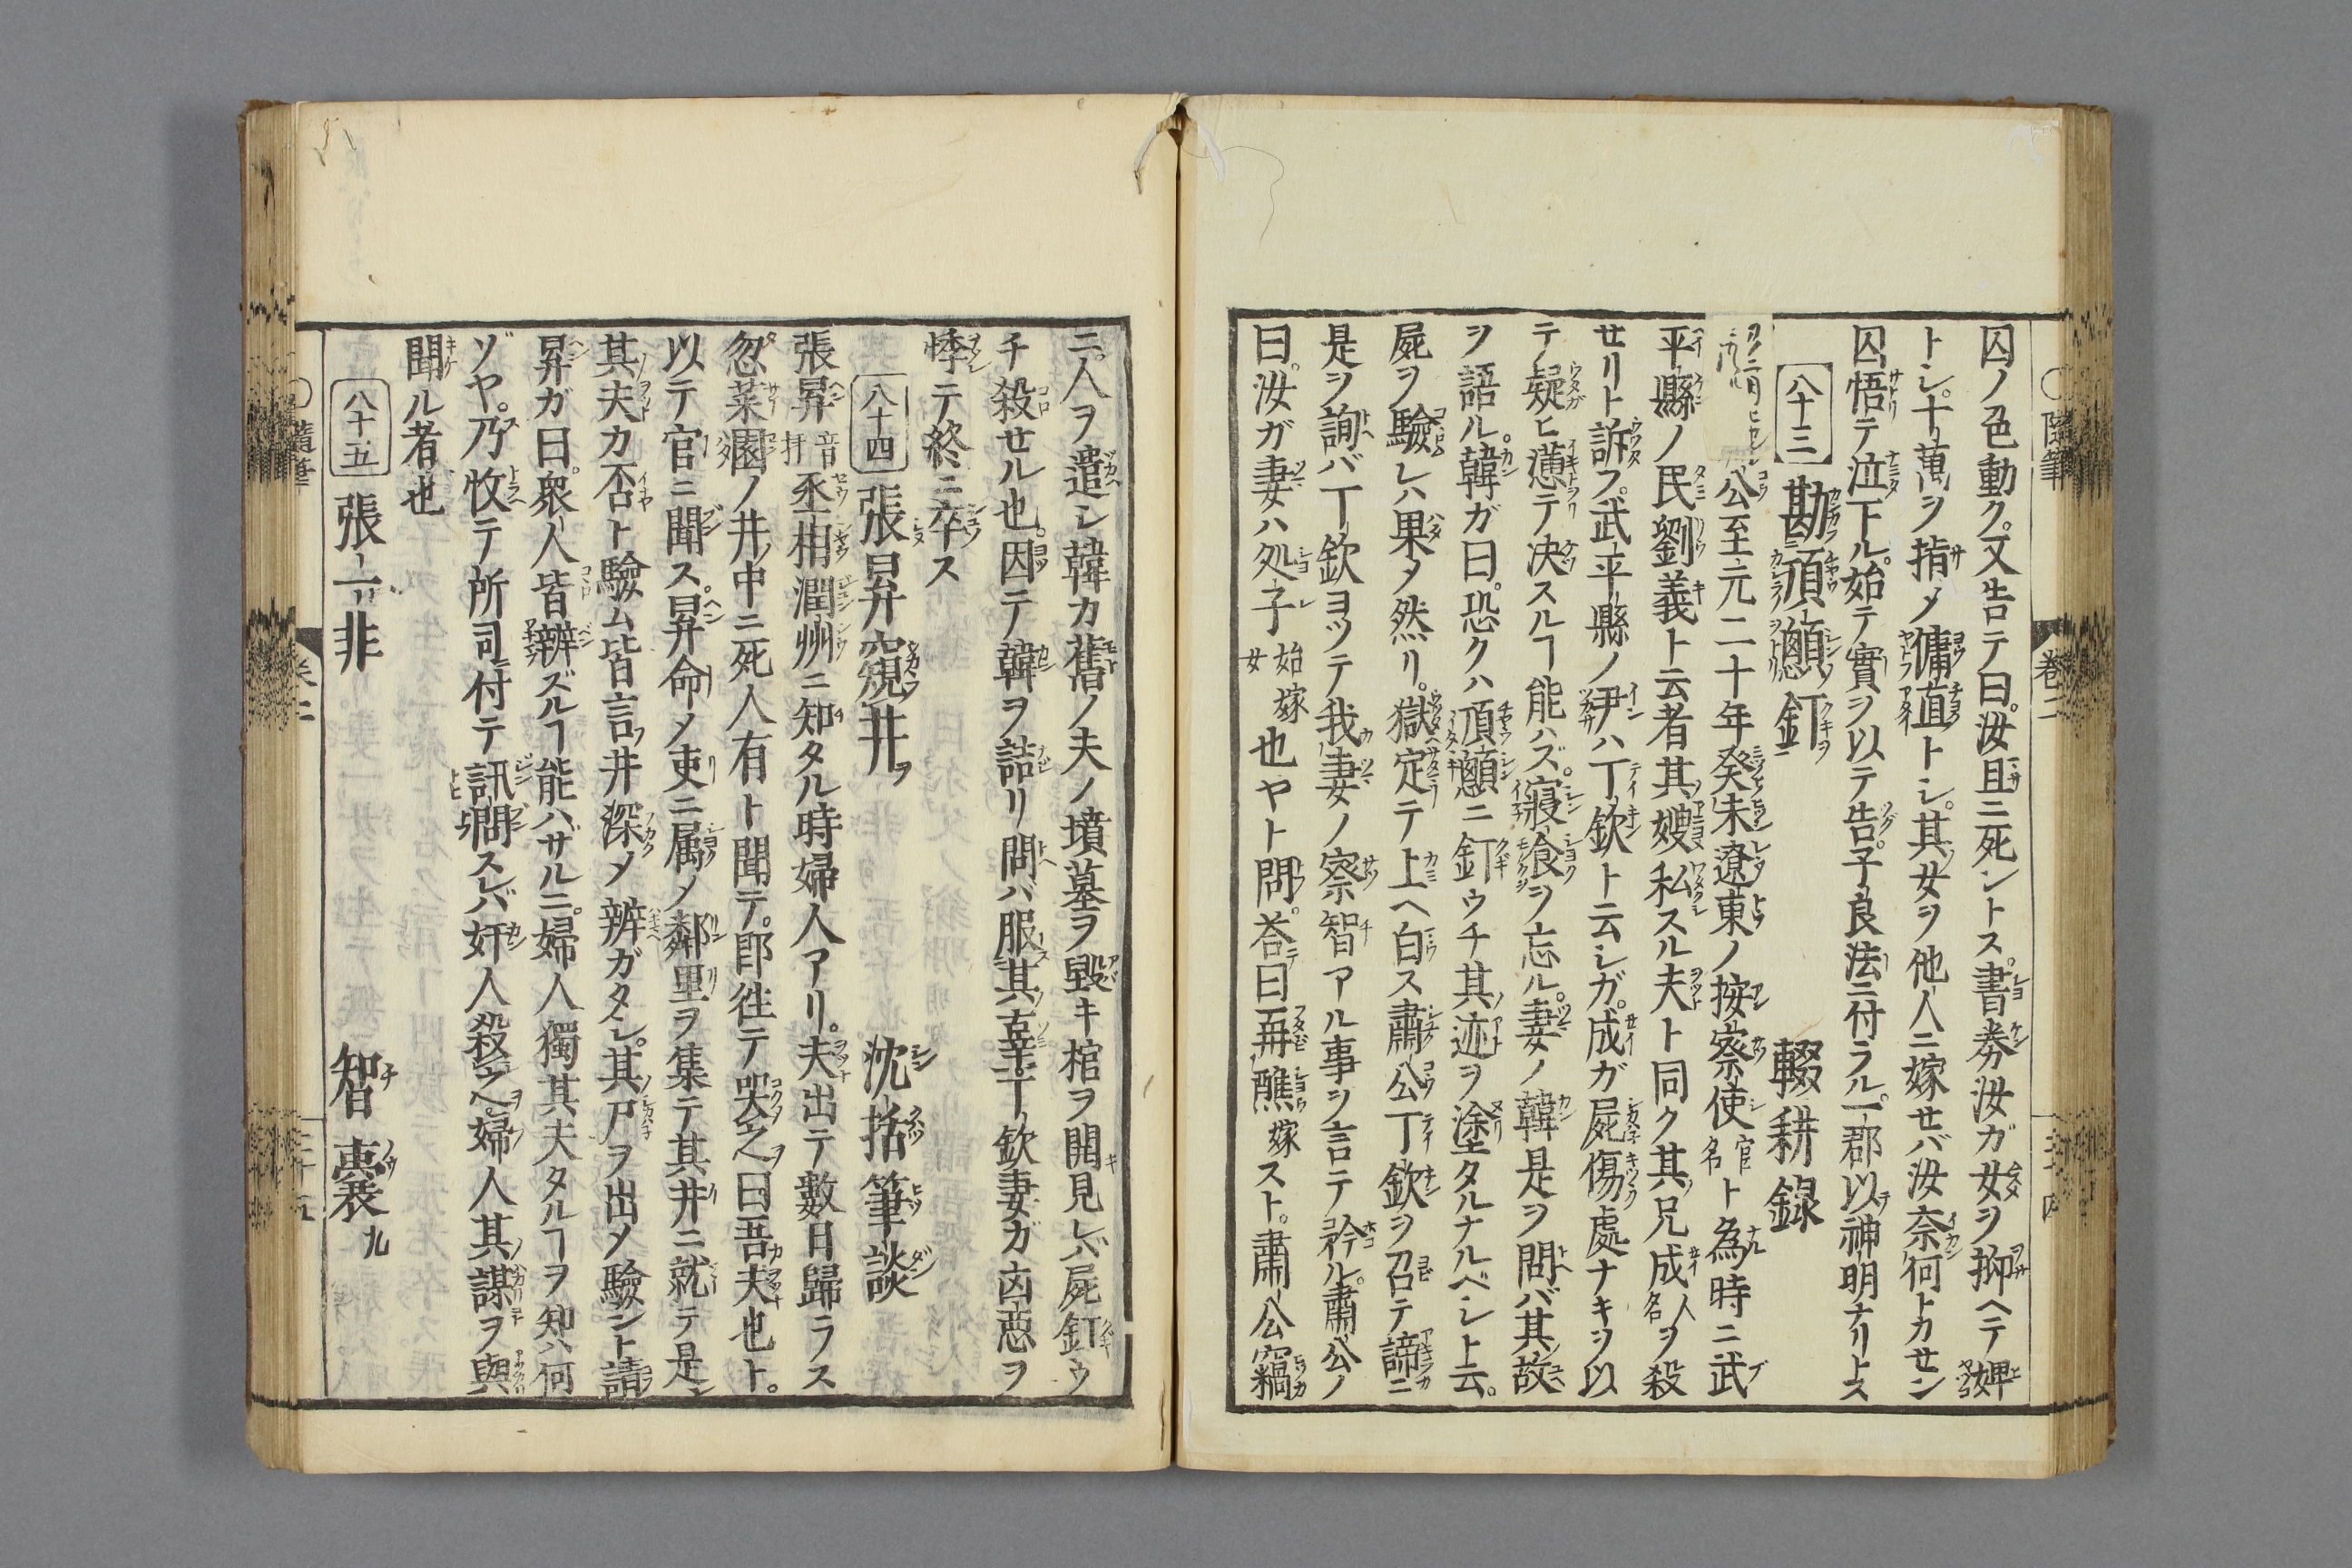 囚ノ色動ク又告テ曰。汝且ニ死ントス。書券汝ガ女ヲ抑ヘテ婢
トシ。十萬ヲ指メ傭直トシ。其女ヲ他人ニ嫁セバ汝奈何トカセン
囚悟テ泣下ル。始テ實ヲ以テ告。子良法ニ付ラル。一郡以神明ナリトス
八十三 勘頂顖釘 輟耕錄
公至元二十年癸未遼東ノ按察使官名ト為時ニ武
平縣ノ民劉義ト云者其嫂私スル夫ト同ク其兄成人名ヲ殺
せリト訴フ。武平縣ノ尹ハ丁欽ト云シガ。成ガ屍傷處ナキヲ以
テ疑ヒ懣テ决スルヿ能ハズ。寢飡ヲ忘ル。妻ノ韓是ヲ問バ其故
ヲ語ル。韓ガ曰。恐クハ頂顖ニ釘ウチ其迹ヲ塗タルナルベシト云。
屍ヲ驗レハ果メ然リ。獄定テ上ヘ白ス肅公丁欽ヲ召テ諦ニ
是ヲ詢バ丁欽ヨツテ我妻ノ察智アル事ヲ言テ矜ル。肅公ノ
曰。汝ガ妻ハ処子始嫁女也ヤト問。荅曰再醮嫁スト。肅公竊
ニ人ヲ遣シ韓カ舊ノ夫ノ墳墓ヲ毀キ棺ヲ開見レバ屍釘ウ
チ殺せル也。因テ韓ヲ詰リ問バ服其辜丁欽妻ガ凶惡ヲ
悸テ終ニ卒ス
八十四 張昇窺井 沈括筆談
張昇音拚丞相潤州ニ知タル時婦人アリ。夫出テ數日歸ラス
忽菜園ノ井中ニ死人有ト聞テ。即徃テ哭之曰吾夫也ト。
以テ官ニ聞ス。昇命メ吏ニ属メ鄰里ヲ集テ其井ニ就テ是
其夫カ否ト驗ム皆言井深メ辨ガタシ。其尸ヲ出メ驗ント請
昇ガ曰。衆人皆辨ズルヿ能ハザルニ。婦人獨其夫タルヿヲ知ハ何
ゾヤ。乃收テ所司付テ訊問スレバ奸人殺之。婦人其謀ヲ與
聞ル者也
八十五 張一非 智囊九